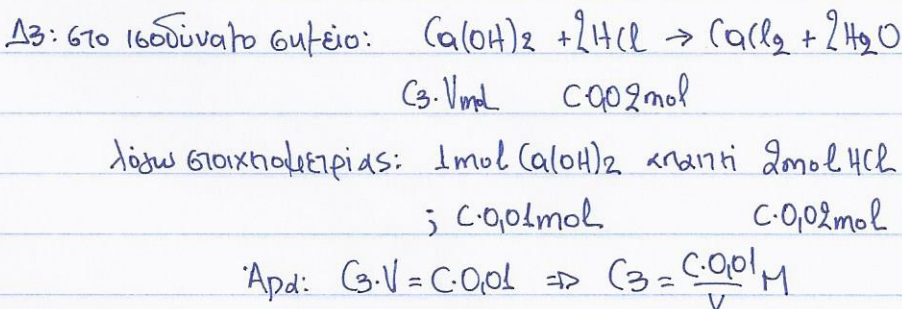 Δ3: στο ισοδύναμο σημείο: Ca(OH)2 + 2HCl → CaCl2 + 2H2O
C3·V mol C·0,02mol
λόγω στοιχειομετρίας: 1mol Ca(OH)2 απαιτεί 2mol HCl
; C·0,01mol C·0,02mol
Άρα: C3·V = C·0,01 ⇒ C3 = C·0,01/V M